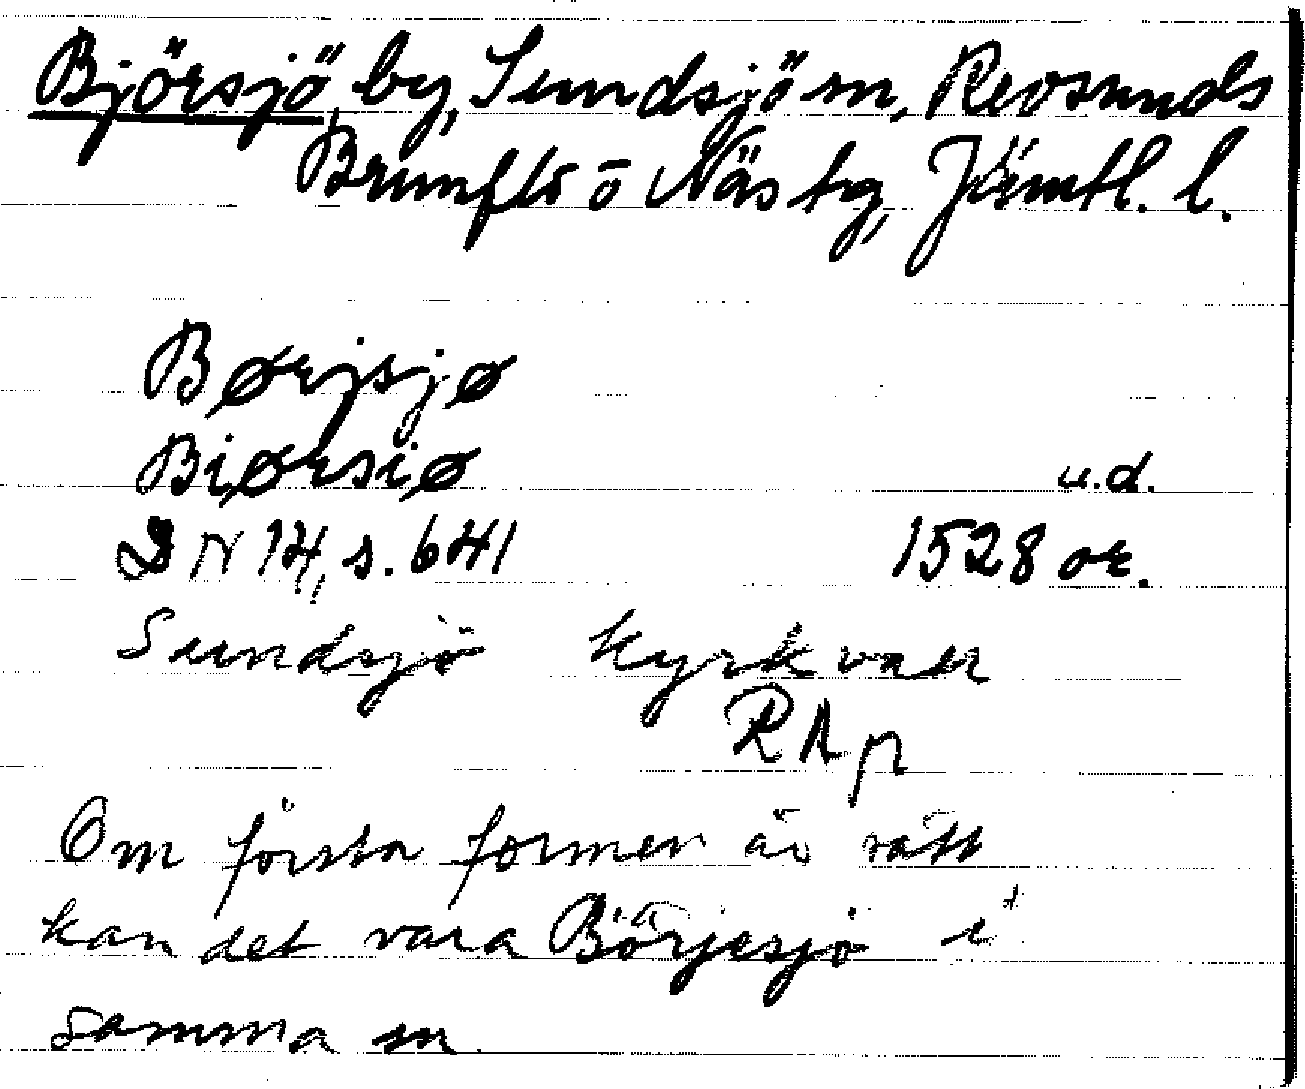 Björsjö, by, Sundsjö sn, Revsunds
Brunflo o Näs tg, Jämtl. l.
Børjsjø
Biørsiø u.d.
DN 14, s. 641 1528 or.
Sundsjö kyrk
RAp
Om första formen är rätt
kan det vara Börjesjö i
samma sn.